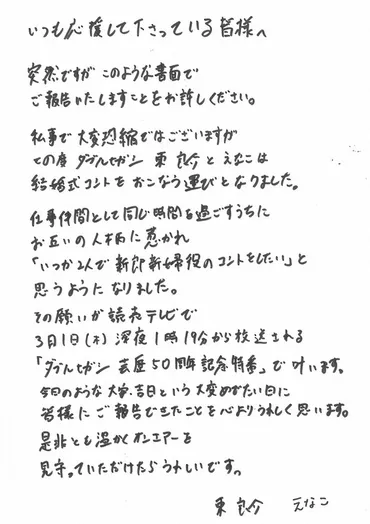 いつも応援して下さっている皆様へ
突然ですが このような書面で
ご報告いたしますことをお許しください。
私事で 大変恐縮ではございますが
この度 ダブルヒガシ 東 良介 と えなこは
結婚式コントを おこなう運びとなりました。
仕事仲間として同じ時間を過ごすうちに
お互いの人柄に惹かれ
「いつか2人で 新郎新婦役のコントをしたい」と
思うように なりました。
その願いが 読売テレビで
3月1日(木) 深夜1時19分から放送される
「ダブルヒガシ 芸歴50周年記念特番」で叶います。
今日のような 大安吉日という 大変めでたい日に
皆様に ご報告できたことを心よりうれしく思います。
是非とも温かくオンエアーを
見守っていただけたらうれしいです。
東 良介 えなこ